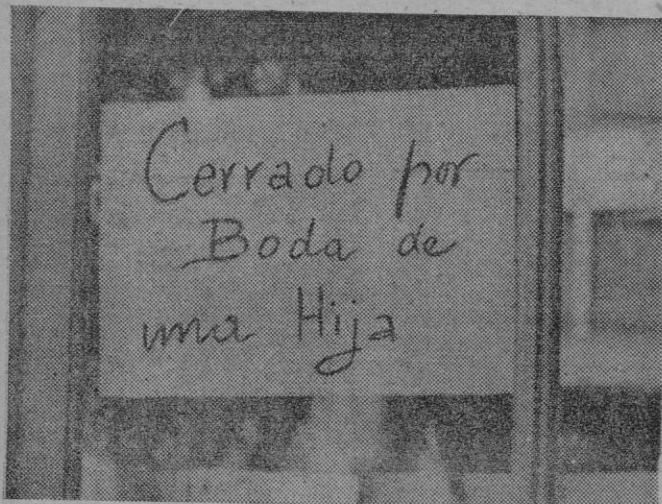 Cerrado por
Boda de
una Hija